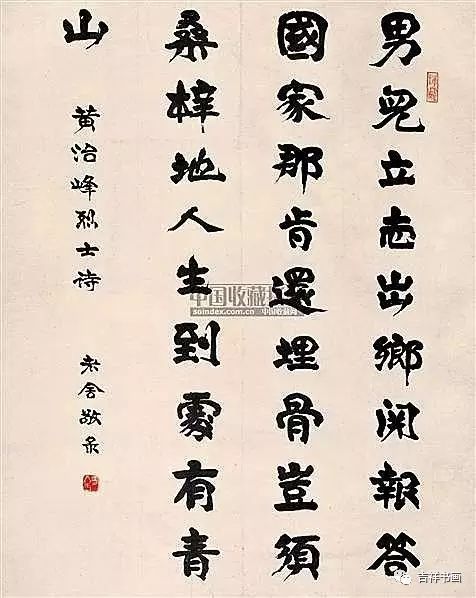 男兒立志出鄉関報答
國家那肯還埋骨豈須
桑梓地人生到處有青
山
黄治峰烈士诗
老舍敬录
中国收藏网
soindex.com.cn
吉祥书画